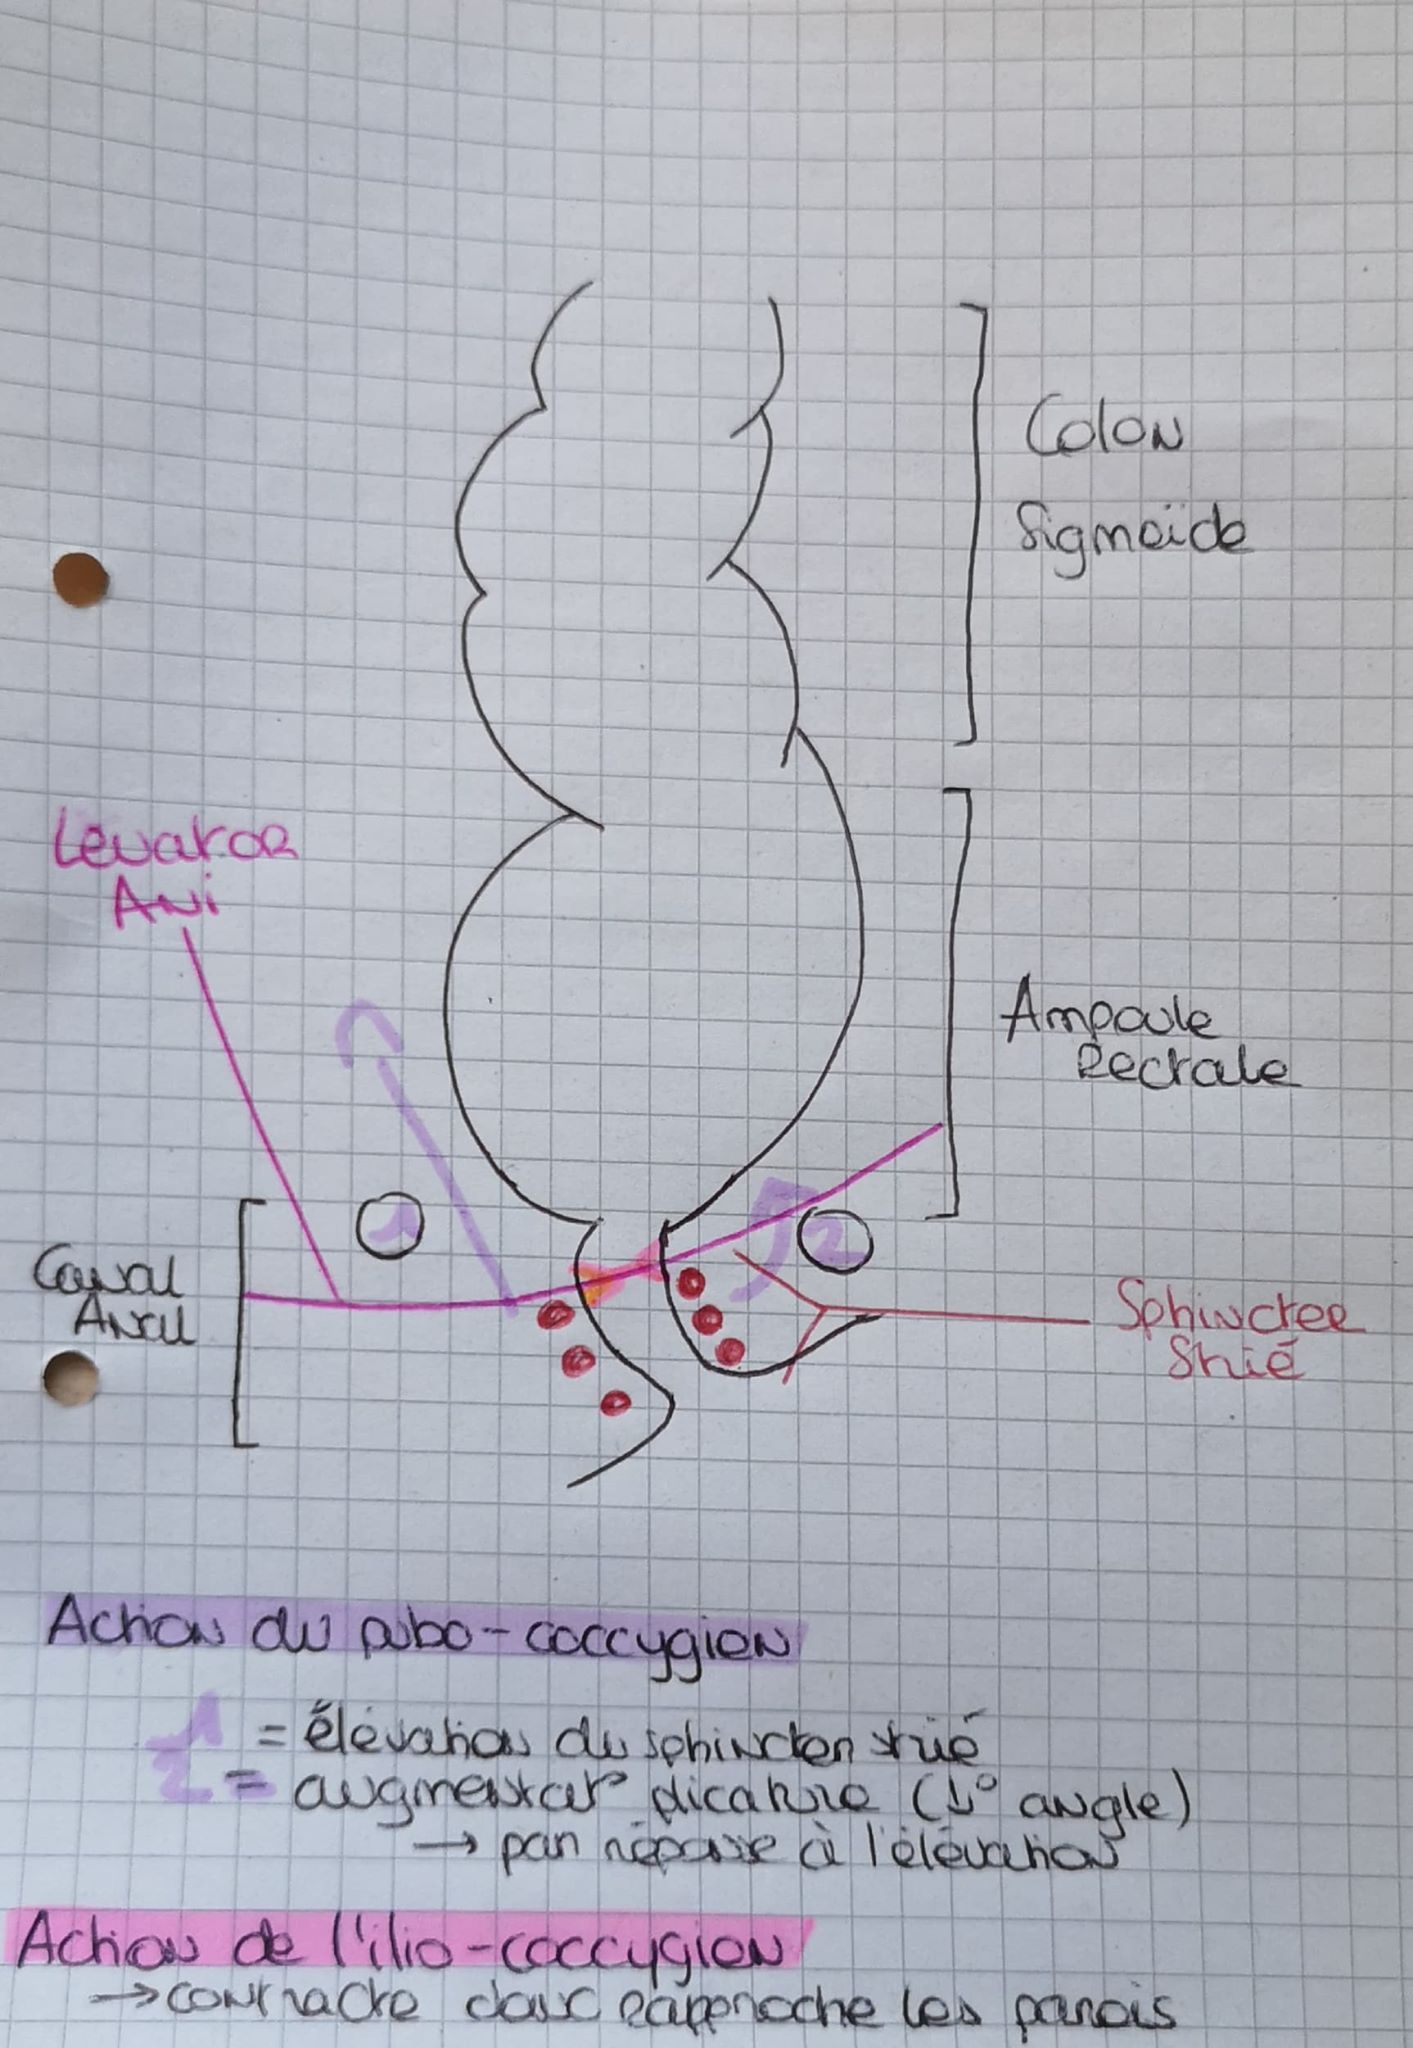 Colon
Sigmoïde
Levator
Ani
Ampoule
Rectale
1
2
Canal
Anal
Sphincter
Strié
Action du pubo-coccygien
1 = élévation du sphincter strié
2 = augmentat° plicature (↓° angle)
→ par réponse à l'élévation
Action de l'ilio-coccygien
→ contracte donc rapproche les parois